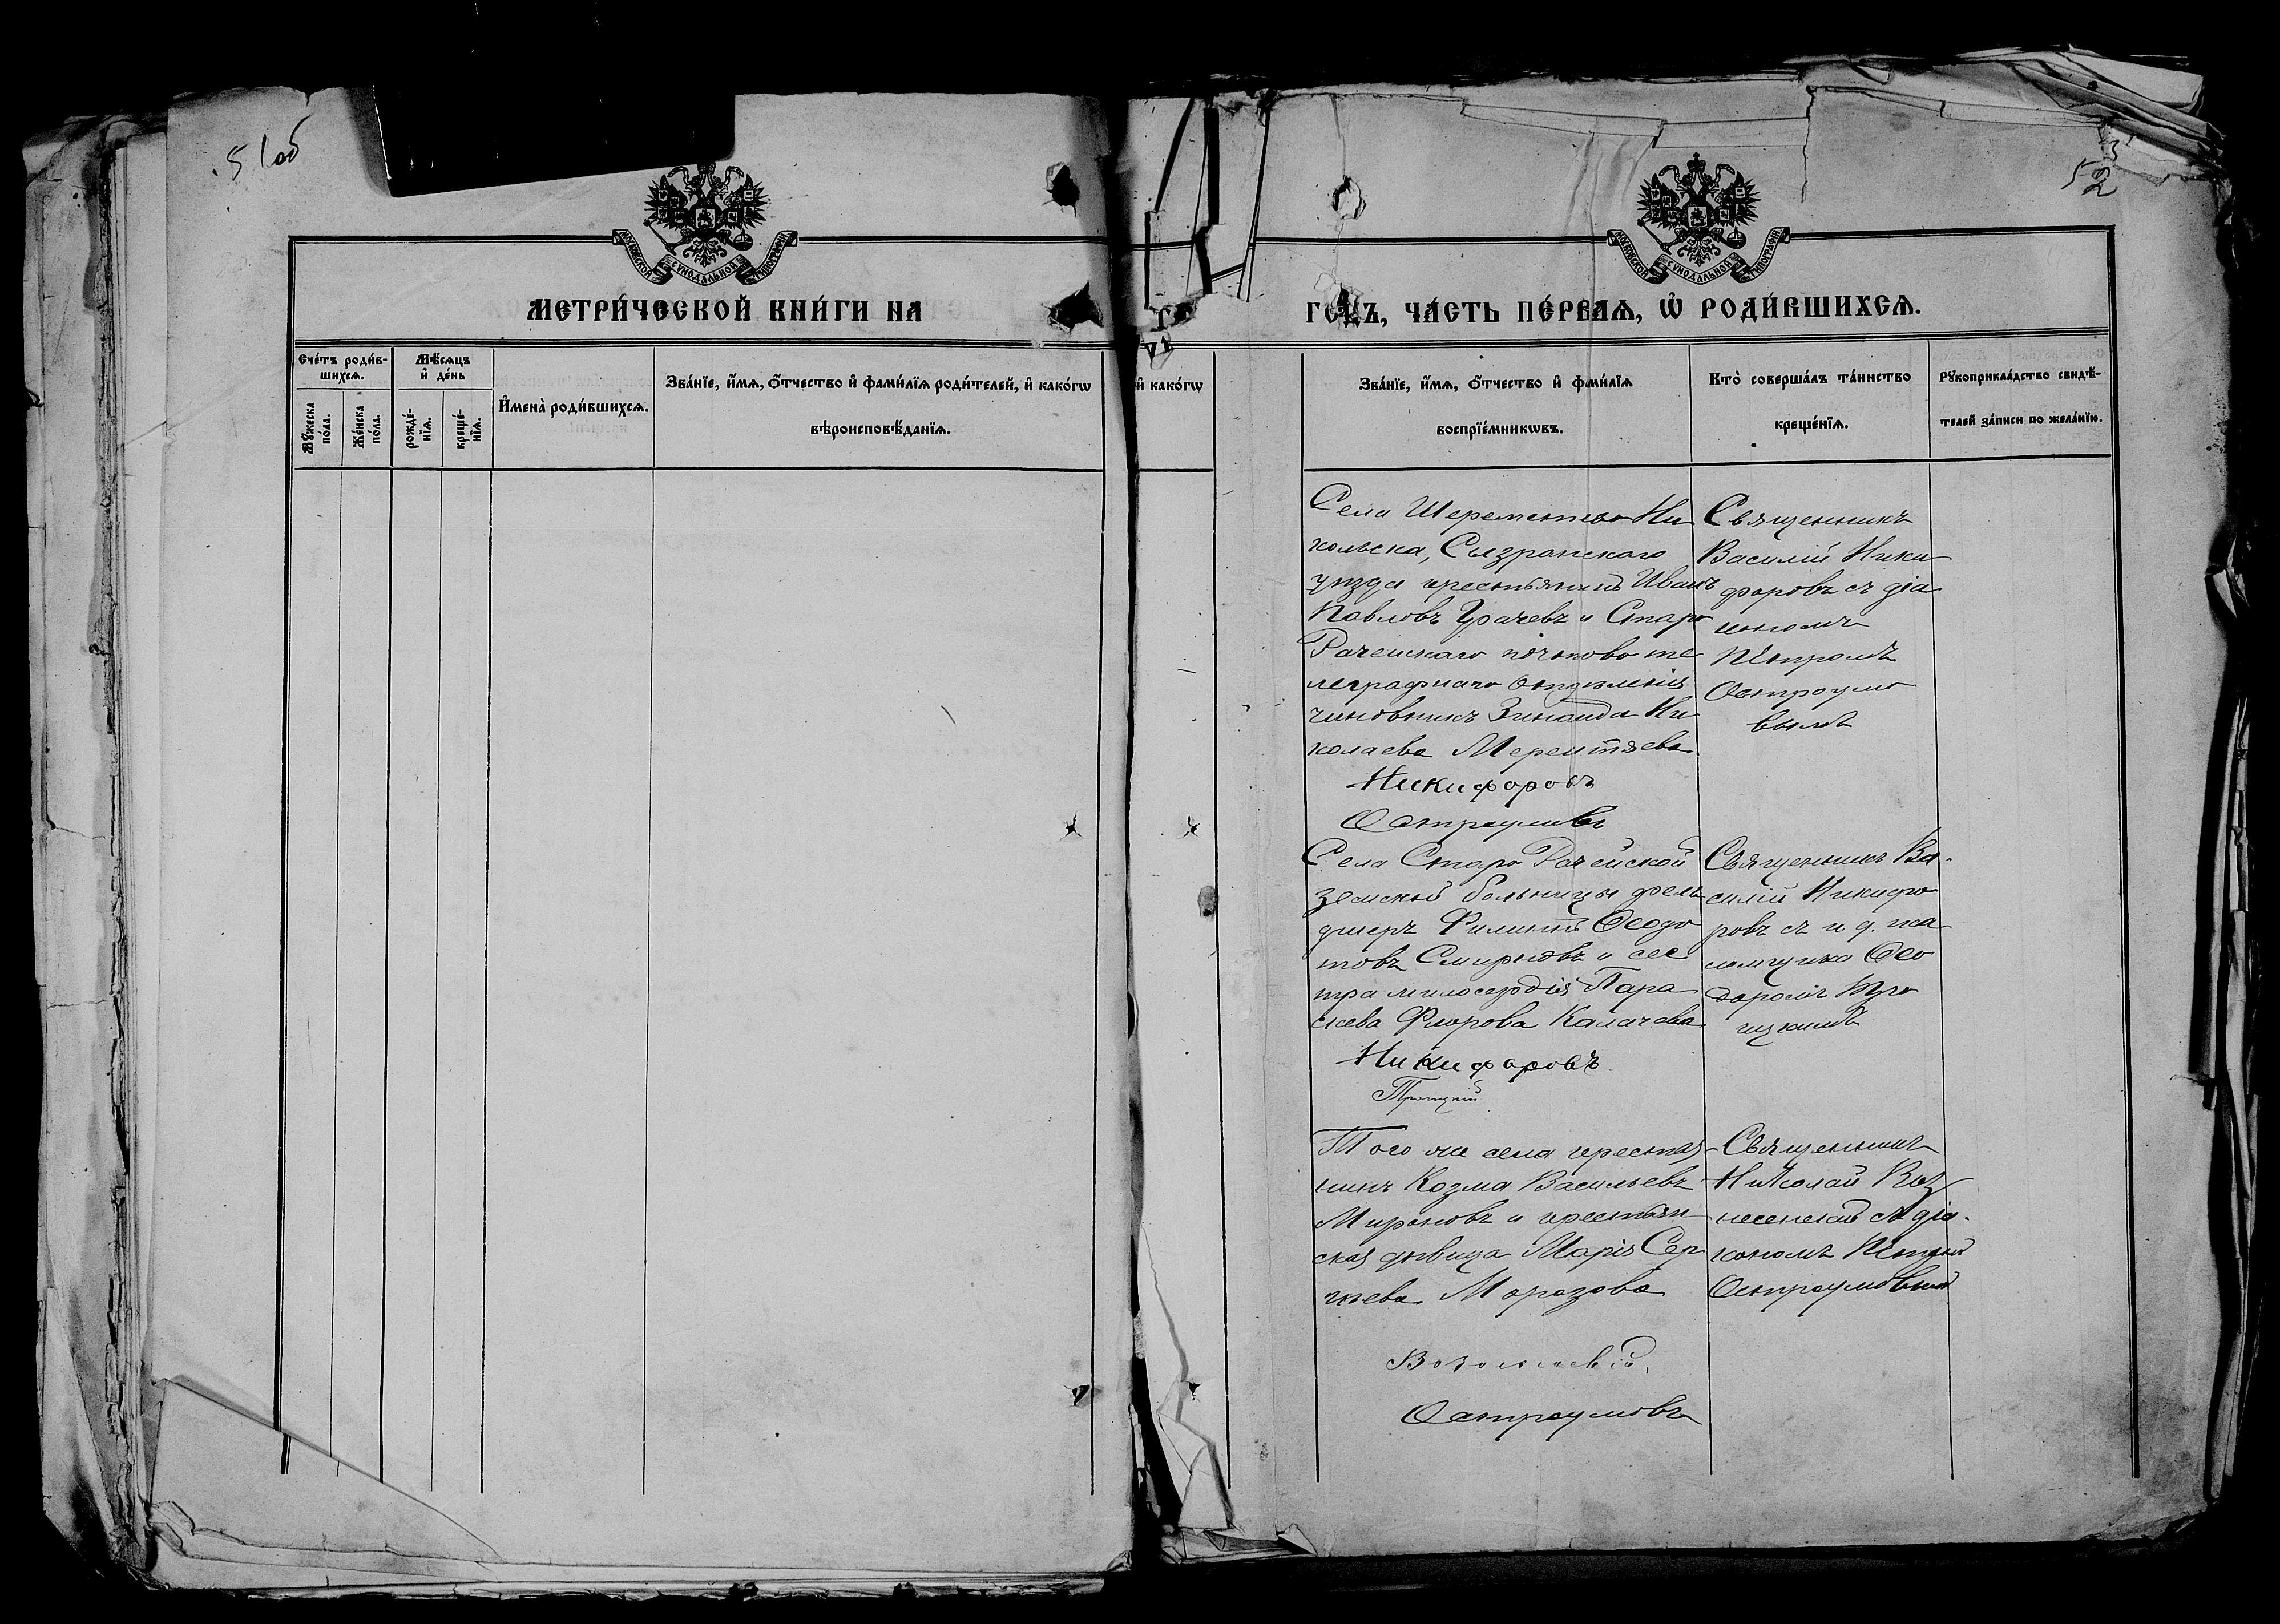 51 об
52
МОСКОВСКОЙ СѴНОДАЛЬНОЙ ТИПОГРАФІИ
МОСКОВСКОЙ СѴНОДАЛЬНОЙ ТИПОГРАФІИ
МЕТРИ́ЧЕСКОЙ КНИ́ГИ НА
ГОДЪ, ЧА́СТЬ ПЕ́РВАЯ, Ѡ҆ РОДИ́ВШИХСЯ.
Сче́тъ роди́в-
шихся.
Мѣ́сяцъ
и҆ де́нь
Мꙋ́жеска
по́ла.
Же́нска
по́ла.
рожде́-
нїя.
креще́-
нїя.
И҆мена̀ роди́вшихся.
Зва́нїе, и҆́мя, ѻ҆́тчество и҆ фами́лїя роди́телей, и҆ како́гѡ
вѣроисповѣ́данїя.
и҆ како́гѡ
Зва́нїе, и҆́мя, ѻ҆́тчество и҆ фами́лїя
воспрїе́мникѡвъ.
Кто̀ соверша́лъ та́инство
креще́нїя.
Рꙋкоприкла́дство свидѣ́-
телей за́писи по жела́нїю.
Села Шереметево Ни
кольска, Сызранскаго
уѣзда крестьянинъ Иванъ
Павловъ Грачевъ и Старо
Рачейскаго почтово те
леграфнаго отдѣленія
чиновникъ Зинаида Ни
колаева
Никифоровъ
Остроумовъ
Священникъ
Василій Ники
форовъ съ діа
кономъ
Петромъ
Остроумо
вымъ
Села Старо Рачейской
земской больницы фель
дшеръ Филиппъ Ѳеодо
товъ Смирновъ и сес
тра милосердія Пара
скева Флорова Калачева
Никифоровъ
Троицкій
Священникъ Ва-
силій Никифо
ровъ съ и. д. пса
ломщика Ѳео
доромъ Тро
ицкимъ
Того же села крестья
нинъ Козма Васильевъ
Мироновъ и крестьян
ская дѣвица Марія Сер
гѣева Морозова
Вознесенскій
Остроумовъ
Священникъ
Николай Воз
несенскій съ діа-
кономъ Петромъ
Остроумовымъ